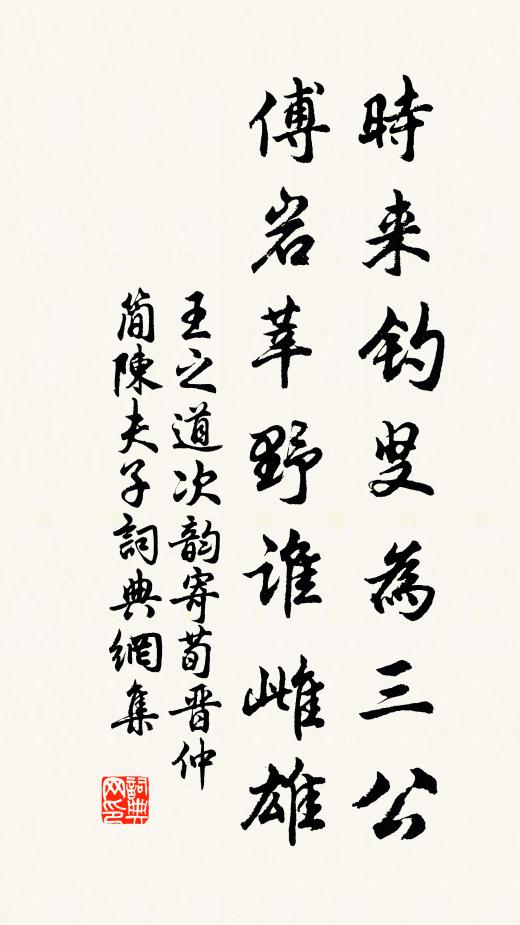 時来釣叟為三公
傅岩莘野谁雌雄
王之道次韵寄荀晋仲
简陳夫子詞典網集
詞典网印